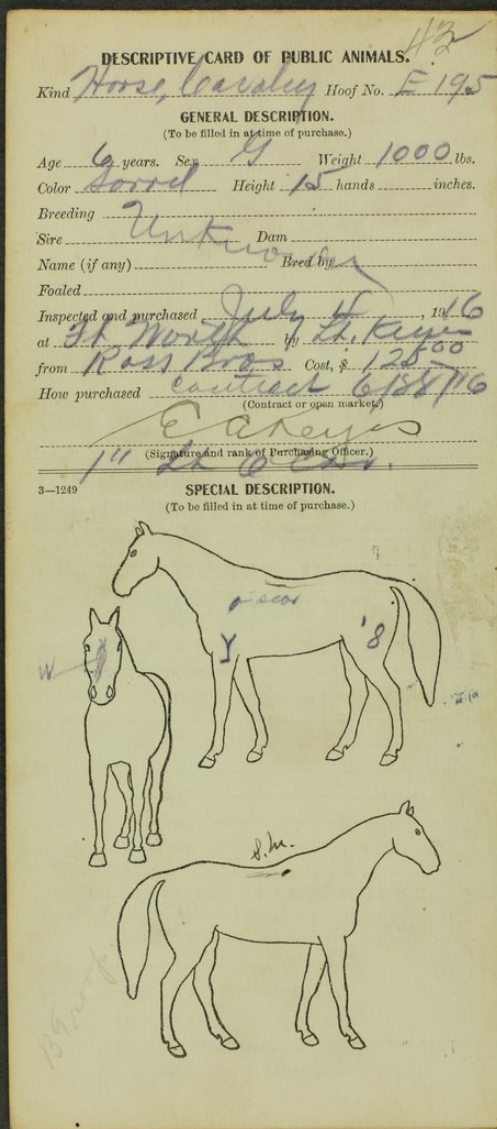 42
DESCRIPTIVE CARD OF PUBLIC ANIMALS.
Kind Horse, Cavalry Hoof No. E 195
GENERAL DESCRIPTION.
(To be filled in at time of purchase.)
Age 6 years. Sex G Weight 1000 lbs.
Color Sorrel Height 15 hands inches.
Breeding
Sire Unknown Dam
Name (if any) Bred by
Foaled
Inspected and purchased July 5, 1916
at Ft. Worth by Lt. Keyes
from Ross Bros Cost, $ 125 00
How purchased contract 6/
(Contract or open market.)
E A Keyes
(Signature and rank of Purchasing Officer.)
1" Lt 6 Cav.
3—1249 SPECIAL DESCRIPTION.
(To be filled in at time of purchase.)
scar
Y '8
W
S.M.
B Troop